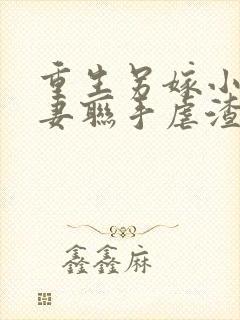 重生另嫁小
妻联手虐渣
鑫鑫麻